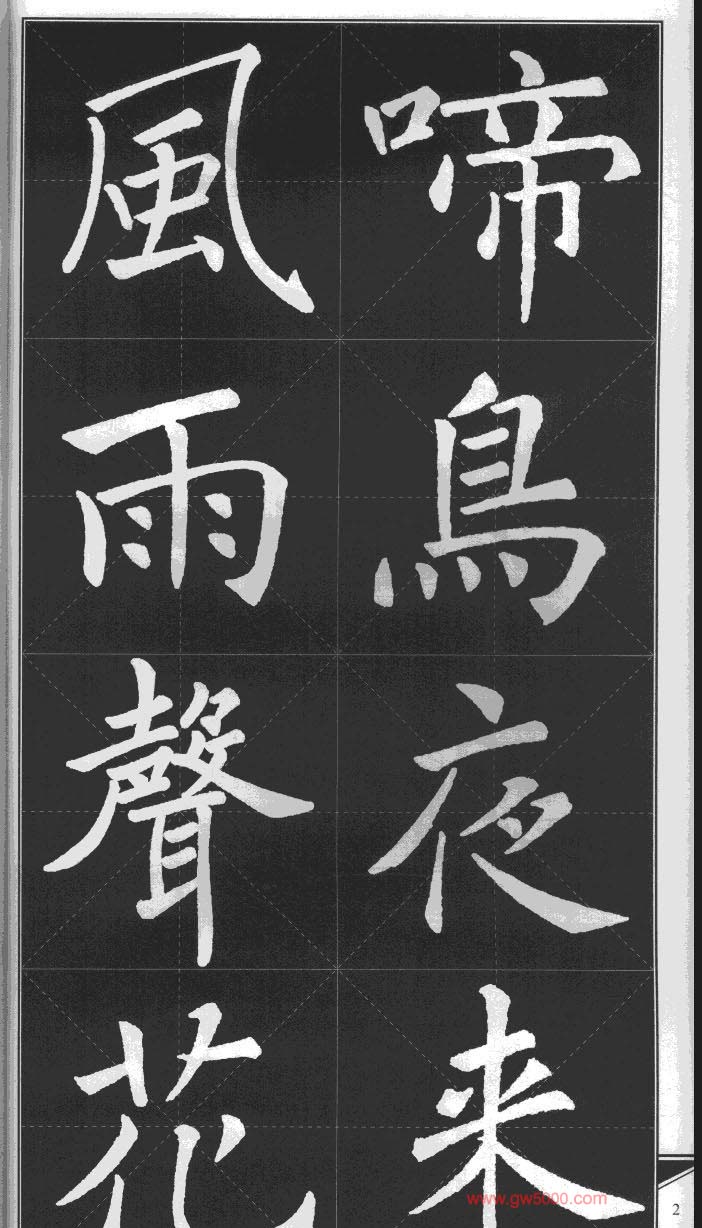 啼鳥夜来
風雨聲花
www.gw5000.com
2